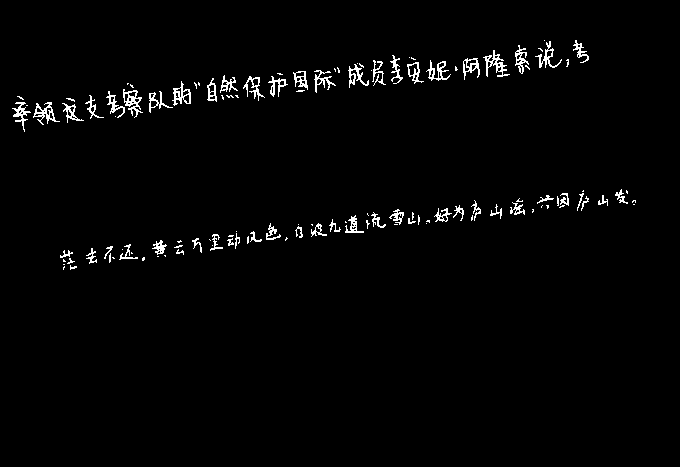 率领这支考察队的“自然保护国际”成员李安妮·阿隆索说,考
茫去不还。黄云万里动风色,白波九道流雪山。好为庐山谣,兴因庐山发。